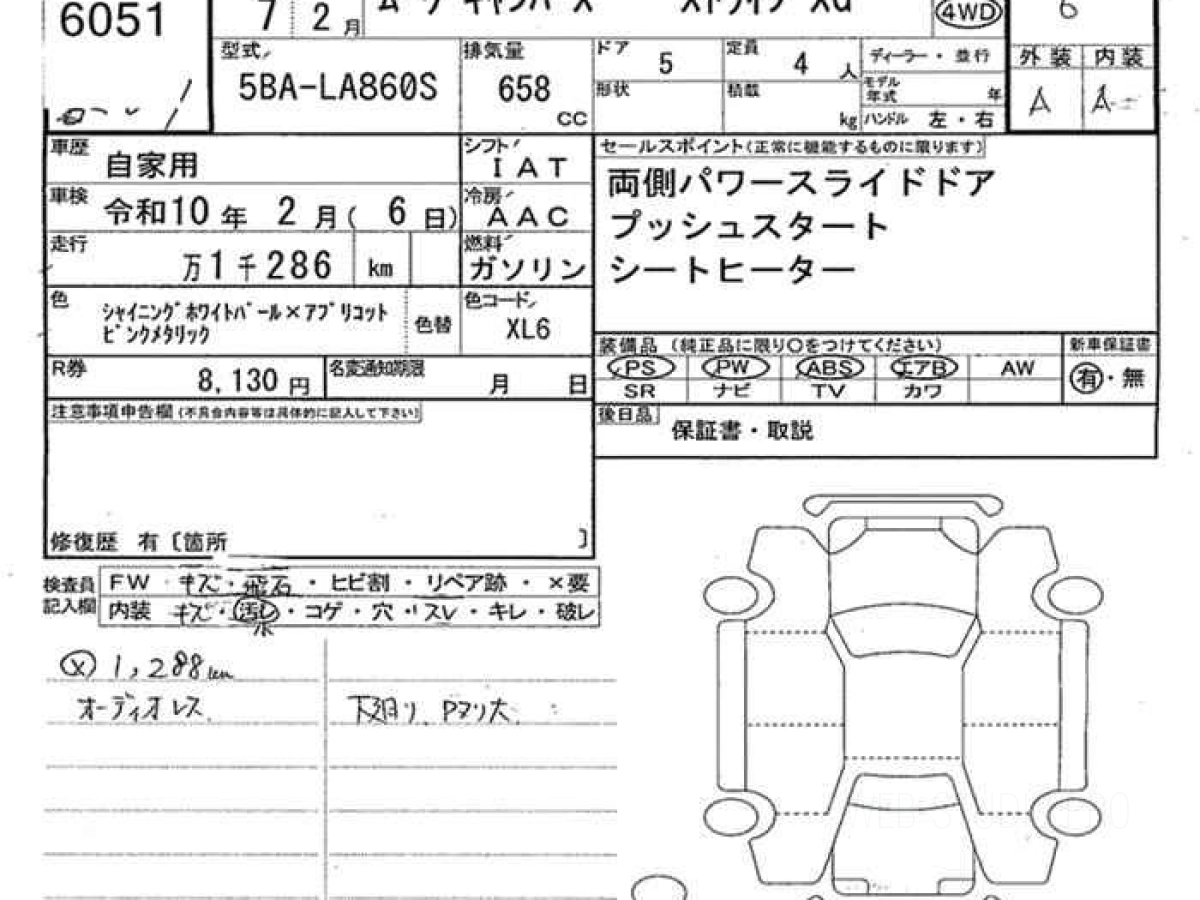 6051
7 2月
ムーヴ キャンバス
ストライプス G
4WD
6
型式
5BA-LA860S
排気量
658
CC
ドア 5
定員 4 人
形状
積載
kg
ディーラー・並行
モデル年式 年
ハンドル 左・右
外装 内装
A A
車歴
自家用
シフト
IAT
車検
令和10年 2月( 6日)
冷房
AAC
走行
万1千286 km
燃料
ガソリン
色
シャイニングホワイトパール×アプリコット
ピンクメタリック
色替
色コード
XL6
R券
8,130 円
名変通知期限
月 日
注意事項申告欄(不具合内容等は具体的に記入して下さい)
修復歴 有〔箇所 〕
セールスポイント(正常に機能するものに限ります)
両側パワースライドドア
プッシュスタート
シートヒーター
装備品 (純正品に限り〇をつけてください)
PS PW ABS エアB AW
SR ナビ TV カワ
新車保証書
有・無
後日品
保証書・取説
検査員
記入欄
FW キズ・飛石・ヒビ割・リペア跡・×要
内装 キズ・汚レ・コゲ・穴・スレ・キレ・破レ
1,288km
オーディオレス
下廻り、Pヌリ大